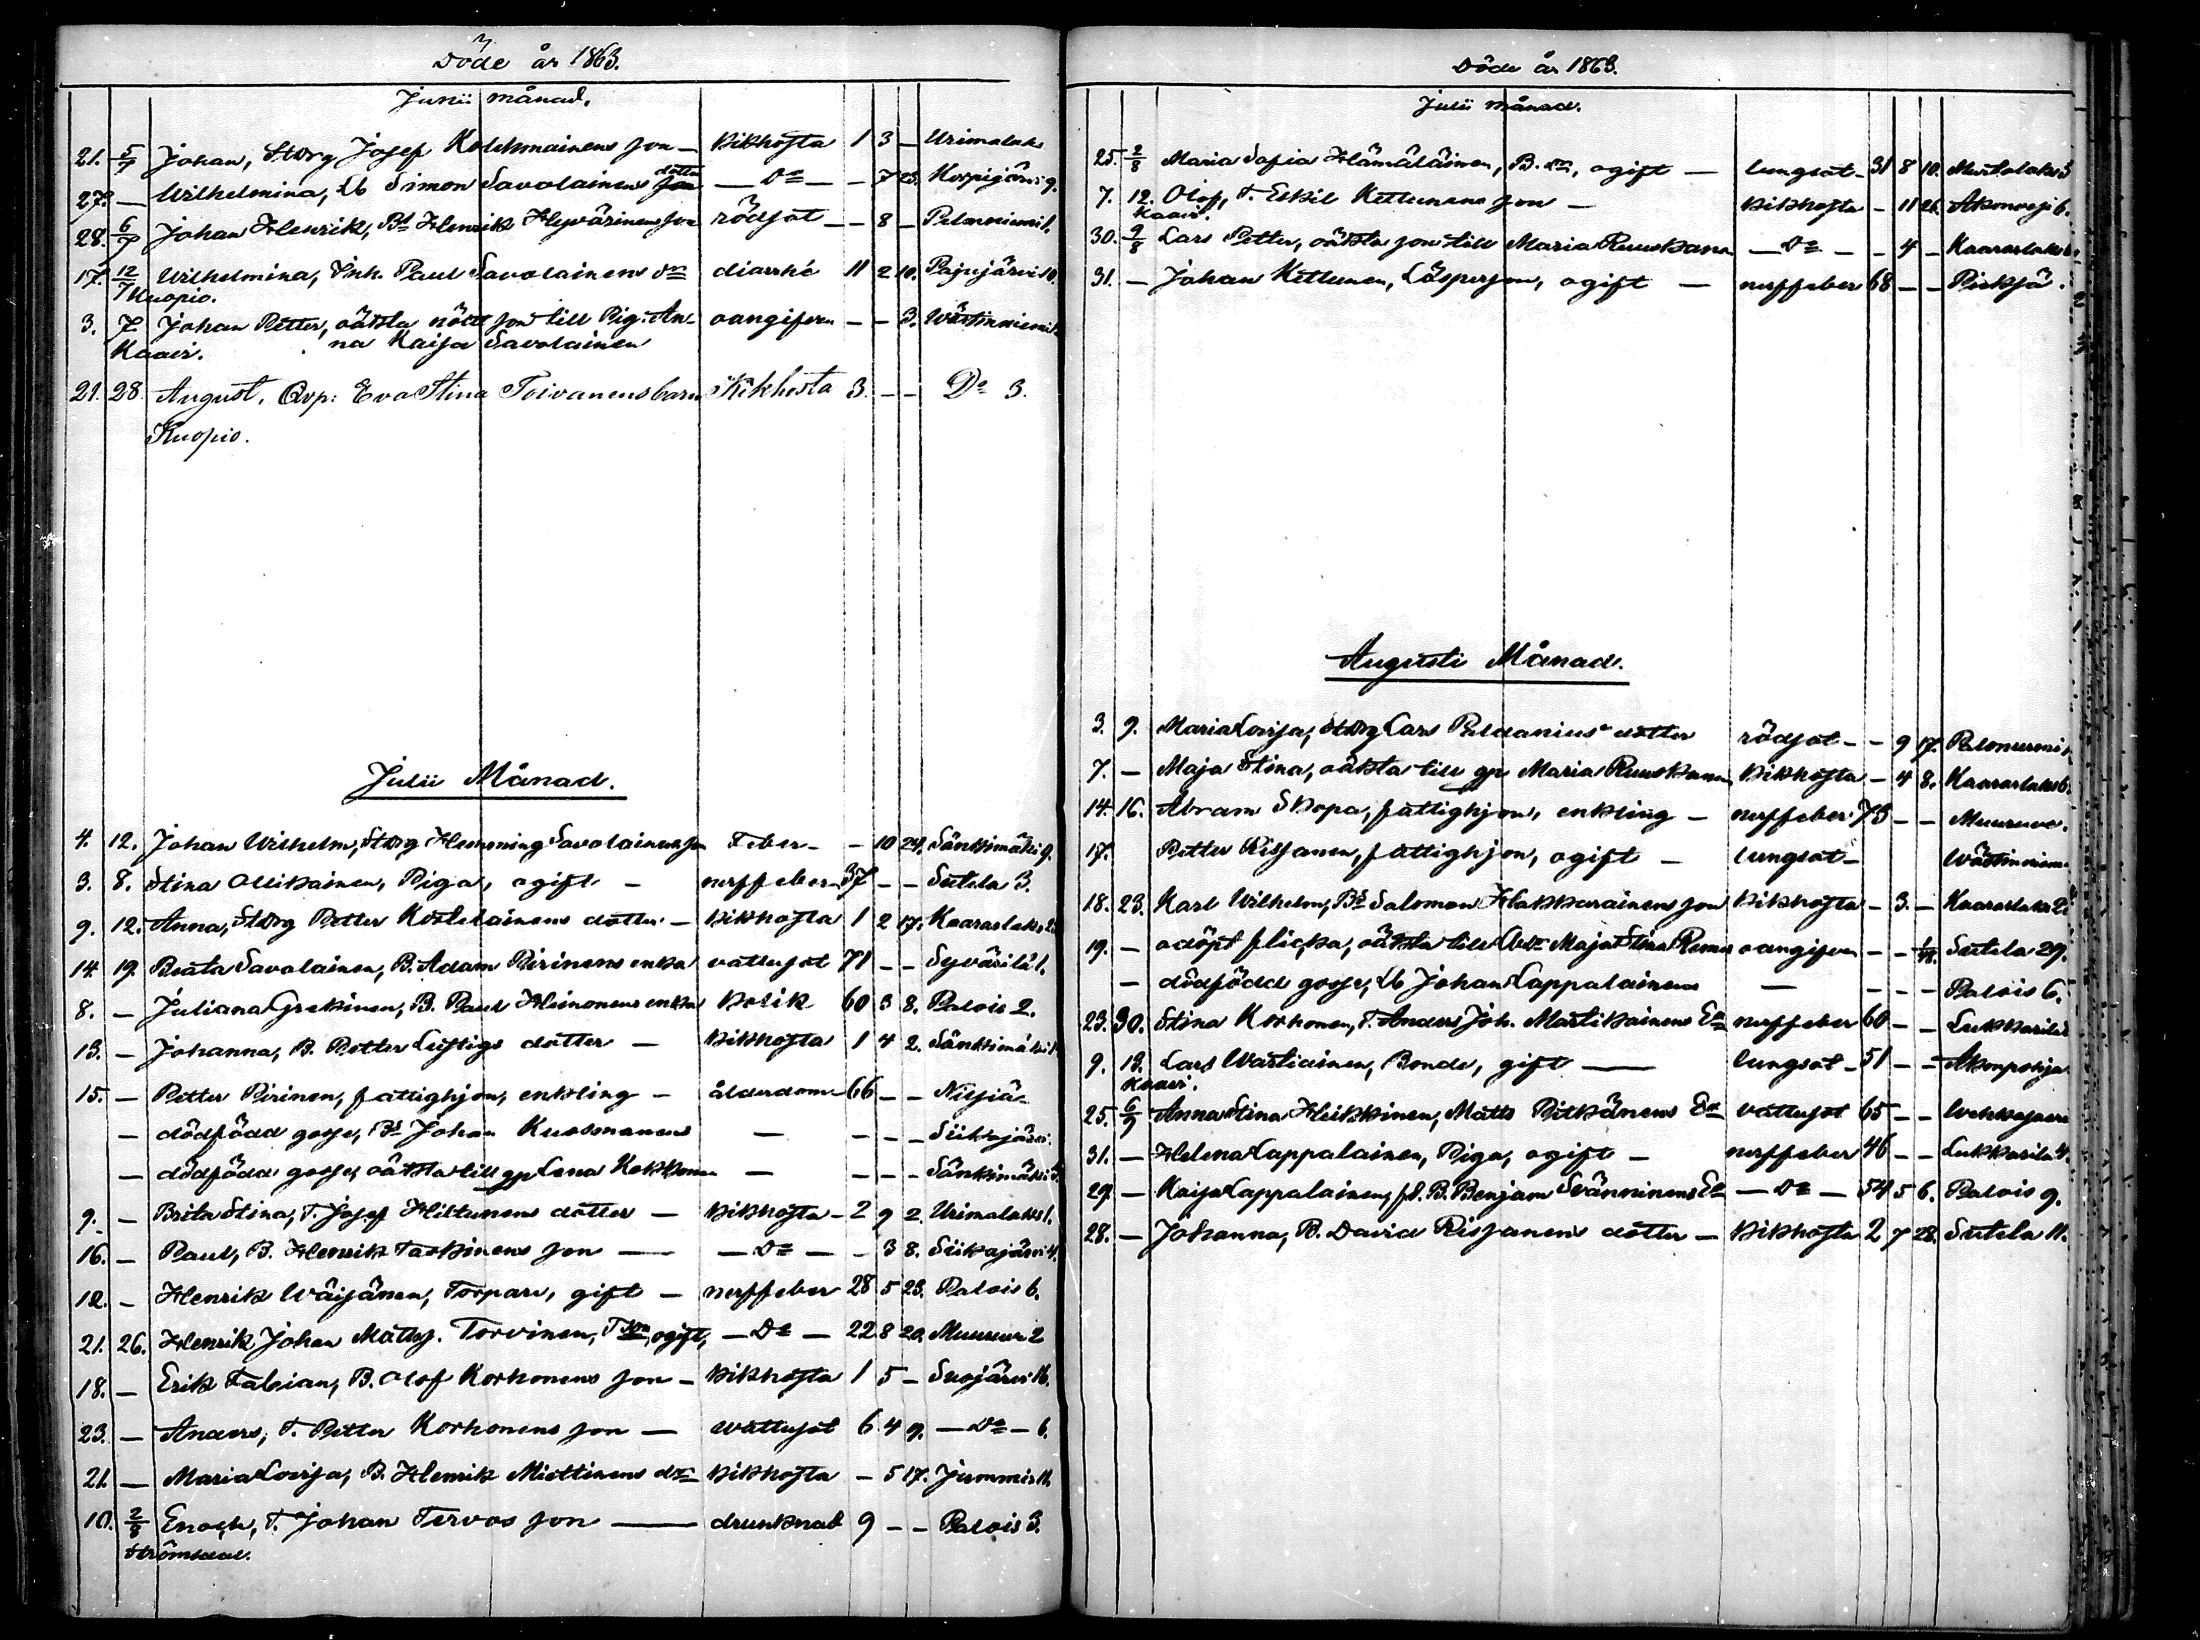 Döde år 1863.
Junii månad.
21. 5/7 Johan, Storg Josef Kolehmainens son — Kikhosta 1 3 — Urimolaks
27. — Wilhelmina, Lb Simon Savolainens dotter — Do — — 7 23. Korpijärvi 9.
28. 6/7 Johan Henrik, Bd Henrik Hyvärinens son rödsot — — 8 — Pelonniemi 1.
17. 12/7 Wilhelmina, Inh. Paul Savolainens dr diarrhé 11 2 10. Pajujärvi 10.
Kuopio.
3. 7 Johan Petter, oäkta nött son till Pig: An- oangifven — — 3. Wästinniemi
Kaavi. na Kaisa Savolainen
21. 28. August, Qvp: Eva Stina Toivanens barn Kikhosta 3. — — Do 3.
Kuopio.
Julii Månad.
4. 12. Johan Wilhelm, Storg Hemming Savolainens son Feber — — 10 24. Sänkimäki 9.
3. 8. Stina Ollikainen, Piga, ogift — nerffeber 37 — — Sutela 3.
9. 12. Anna, Storg Petter Kostelainens dotter — Kikhosta 1 2 17. Kaaraslaks 2.
14 19. Beata Savolainen, B. Adam Pirinens enka vattusot 71 — — Syvärilä 1.
8. — Juliana Grekinen, B. Paul Heinonens enka Kolik 60 3 8. Palois 2.
13. — Johanna, B. Petter Luftigs dotter — Kikhosta 1 4 2. Sänkimäki
15. — Petter Pirinen, fattighjon, enkling — ålderdom 66 — — Nilsiä
— dödfödd gosse, Bd Johan Kuosmanens — — — — Siikajärvi.
— dödfödd gosse, oäkta till qp Lena Kokkonen — — — — Sänkimäki
9. — Brita Stina, T. Josef Hiltunens dotter — Kikhosta 2 9 2. Urimolaks 1.
16. — Paul, B. Henrik Taskinens son — — Do — — 3 8. Siikajärvi 4.
12. — Henrik Wäisänen, Torpare, gift — nerffeber 28 5 23. Palois 6.
21. 26. Henrik Johan Mattss. Torvinen, Tson, ogift, — Do — 22 8 20. Muuruv 2
18. — Erik Fabian, B. Olof Korhonens son — Kikhosta 1 5 — Suojärvi 16.
23. — Anders, T. Petter Korhonens son — vattusot 6 4 9. — Do — 6.
21. — Maria Lovisa, B. Henrik Miettinens dr Kikhosta — 5 17. Juminen 11.
10. 2/8 Enoch, T. Johan Tervos son — drunknad 9 — — Palois 3.
Strömsdal.
Döde år 1863.
Julii månad.
25. 2/8 Maria Sofia Hämäläinen, B. dr, ogift — lungsot 31 8 10. Murtolaks 5
7. 12. Olof, T. Eskil Kettunens son — Kikhosta — 11 26. Akonvesi 6.
Kaavi.
30. 9/8 Lars Petter, oäkta son till Maria Ruuskanen — Do — — 4 — Kaaraslaks
31. — Johan Kettunen, Lösperson, ogift — nerffeber 68 — — Pieksä.
Augusti Månad.
3. 9. Maria Lovisa, Storg Lars Poldanius dotter rödsot — — 9 17. Pelonniemi
7. — Maja Stina, oäkta till qp Maria Ruuskanen Kikhosta — 4 8. Kaaraslaks 6.
14. 16. Abram Skopa, fattighjon, enkling — nerffeber 73 — — Muuruve.
17. Petter Rissanen, fattighjon, ogift — lungsot — Wästinniemi
18. 23. Karl Wilhelm, Bd Salomon Hakkarainens son Kikhosta — 3. — Kaaraslaks 2.
19. — odöpt flicka, oäkta till Maja Stina oangifven — — Sutela 29.
— dödfödd gosse, Lb Johan Lappalainens — — — — Palois 6.
23. 30. Stina Korhonen, T. Anders Joh. Martikainens Ea nerffeber 60 — — Lukkarila
9. 13. Lars Wartiainen, Bonde, gift — lungsot 51 — — Akonpohja
Kaavi.
25. 6/9 Anna Stina Heikkinen, Matts Pitkänens Ea vattusot 65 — — Wehkajärvi
31. — Helena Lappalainen, Piga, ogift — nerffeber 46 — — Lukkarila 4.
29. — Kaisa Lappalainen, fd. B. Benjam Svänninens Ea — Do — 54 5 6. Palois 9.
28. — Johanna, B. David Rissanens dotter — Kikhosta 2 7 28. Sutela 11.